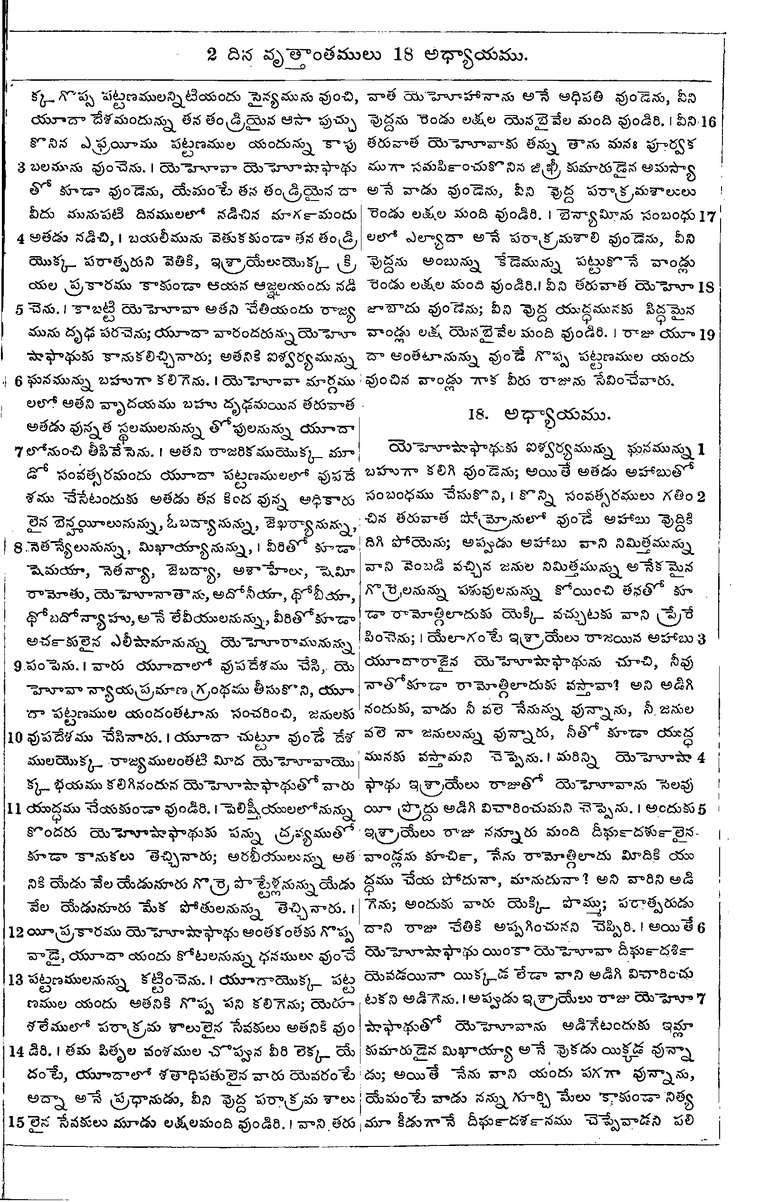 2 దిన వృత్తాంతములు 18 అధ్యాయము.
క్క గొప్ప పట్టణములన్నిటియందు సైన్యమును వుంచి,
యూదా దేశమందున్ను తన తండ్రియైన ఆసా పుచ్చు
కొనిన ఎఫ్రయీము పట్టణముల యందున్ను కాపు
3 బలమును వుంచెను. । యెహోవా యెహోషాఫాథు
తో కూడా వుండెను, యేమంటే తన తండ్రియైన దా
వీదు మునుపటి దినములలో నడిచిన మార్గమందు
4 అతడు నడిచి, । బయలీమును వెతుకకుండా తన తండ్రి
యొక్క పరాత్పరుని వెతికి, ఇశ్రాయేలుయొక్క క్రి
యల ప్రకారము కాకుండా ఆయన ఆజ్ఞలయందు నడి
5 చెను. । కాబట్టి యెహోవా అతని చేతియందు రాజ్య
మును దృఢ పరచెను; యూదా వారందరున్ను యెహో
షాఫాథుకు కానుకలిచ్చినారు; అతనికి ఐశ్వర్యమున్ను
6 ఘనమున్ను బహుగా కలిగెను. । యెహోవా మార్గము
లలో అతని హృదయము బహు దృఢమయిన తరువాత
అతడు వున్నత స్థలములనున్ను తోపులనున్ను యూదా
7 లోనుంచి తీసివేసెను. । అతని రాజరికముయొక్క మూ
డో సంవత్సరమందు యూదా పట్టణములలో వుపదే
శము చేసేటందుకు అతడు తన కింద వున్న అధికారు
లైన బెన్హయీలునున్ను, ఓబద్యానున్ను, జెఖర్యానున్ను,
8 నెతన్యేలునున్ను, మిఖాయ్యానున్ను, । వీరితో కూడా
షెమయా, నెతన్యా, జెబద్యా, అశాహేలు, షెమీ
రామోతు, యెహోనాతాను, అదోనీయా, థోబీయా,
థోబదోన్యాహు, అనే లేవీయులనున్ను, వీరితోకూడా
అర్చకులైన ఎలీషామానున్ను యెహోరామునున్ను
9 పంపెను. । వారు యూదాలో వుపదేశము చేసి, యె
హోవా న్యాయప్రమాణ గ్రంథము తీసుకొని, యూ
దా పట్టణముల యందంతటాను సంచరించి, జనులకు
10 వుపదేశము చేసినారు. । యూదా చుట్టూ వుండే దేశ
ములయొక్క రాజ్యములంతటి మీద యెహోవాయొ
క్క భయము కలిగినందున యెహోషాఫాథుతో వారు
11 యుద్ధము చేయకుండా వుండిరి. । పెలిష్తీయులలోనున్ను
కొందరు యెహోషాఫాథుకు పన్ను ద్రవ్యముతో
కూడా కానుకలు తెచ్చినారు; అరబీయులున్ను అత
నికి యేడు వేల యేడునూరు గొర్రె పొట్టేళ్లనున్ను యేడు
వేల యేడునూరు మేక పోతులనున్ను తెచ్చినారు. ।
12 యీ ప్రకారము యెహోషాఫాథు అంతకంతకు గొప్ప
వాడై, యూదా యందు కోటలనున్ను ధనములు వుంచే
13 పట్టణములనున్ను కట్టించెను. । యూదాయొక్క పట్ట
ణముల యందు అతనికి గొప్ప పని కలిగెను; యెరూ
శలేములో పరాక్రమ శాలులైన సేవకులు అతనికి వుం
14 డిరి. । తమ పితృల వంశముల చొప్పున వీరి లెక్క యే
దంటే, యూదాలో శతాధిపతులైన వారు యెవరంటే
అద్నా అనే ప్రధానుడు, వీని వొద్ద పరాక్రమ శాలు
15 లైన సేవకులు మూడు లక్షలమంది వుండిరి. । వాని తరు
వాత యెహోహానాను అనే అధిపతి వుండెను, వీని
వొద్దను రెండు లక్షల యెనభైవేల మంది వుండిరి. । వీని 16
తరువాత యెహోవాకు తన్ను తాను మనః పూర్వక
ముగా సమర్పించుకొనిన జిఖ్రీ కుమారుడైన అమస్యా
అనే వాడు వుండెను, వీని వొద్ద పరాక్రమశాలులు
రెండు లక్షల మంది వుండిరి. । బెన్యామీను సంబంధు 17
లలో ఎల్యాదా అనే పరాక్రమశాలి వుండెను, వీని
వొద్దను అంబున్ను కేడెమున్ను పట్టుకొనే వాండ్లు
రెండు లక్షల మంది వుండిరి. । వీని తరువాత యెహో 18
జాబాదు వుండెను; వీని వొద్ద యుద్ధమునకు సిద్ధమైన
వాండ్లు లక్ష యెనభైవేల మంది వుండిరి. । రాజు యూ 19
దా అంతటానున్ను వుండే గొప్ప పట్టణముల యందు
వుంచిన వాండ్లు గాక వీరు రాజును సేవించేవారు.
18. అధ్యాయము.
యెహోషాఫాథుకు ఐశ్వర్యమున్ను ఘనమున్ను 1
బహుగా కలిగి వుండెను; అయితే అతడు అహాబుతో
సంబంధము చేసుకొని, । కొన్ని సంవత్సరములు గతిం 2
చిన తరువాత షోమ్రోనులో వుండే అహాబు వొద్దికి
దిగి పోయెను; అప్పుడు అహాబు వాని నిమిత్తమున్ను
వాని వెంబడి వచ్చిన జనుల నిమిత్తమున్ను అనేకమైన
గొర్రెలనున్ను పశువులనున్ను కోయించి తనతో కూ
డా రామోత్గిలాదుకు యెక్కి వచ్చుటకు వాని ప్రేరే
పించెను; । యేలాగంటే ఇశ్రాయేలు రాజయిన అహాబు 3
యూదారాజైన యెహోషాఫాథును చూచి, నీవు
నాతోకూడా రామోత్గిలాదుకు వస్తావా? అని అడిగి
నందుకు, వాడు నీ వలె నేనున్ను వున్నాను, నీ జనుల
వలె నా జనులున్ను వున్నారు, నీతో కూడా యుద్ధ
మునకు వస్తామని చెప్పెను. । మరిన్ని యెహోషా 4
ఫాథు ఇశ్రాయేలు రాజుతో యెహోవాను సెలవు
యీ ప్రొద్దు అడిగి విచారించుమని చెప్పెను. । అందుకు 5
ఇశ్రాయేలు రాజు నన్నూరు మంది దీర్ఘదర్శులైన
వాండ్లను కూర్చి, నేను రామోత్గిలాదు మీదికి యు
ద్ధము చేయ పోదునా, మానుదునా? అని వారిని అడి
గెను; అందుకు వారు యెక్కి పొమ్ము; పరాత్పరుడు
దాని రాజు చేతికి అప్పగించునని చెప్పిరి. । అయితే 6
యెహోషాఫాథు యింకా యెహోవా దీర్ఘదర్శి
యెవడయినా యిక్కడ లేడా వాని అడిగి విచారించు
టకని అడిగెను. । అప్పుడు ఇశ్రాయేలు రాజు యెహో 7
షాఫాథుతో యెహోవాను అడిగేటందుకు ఇమ్లా
కుమారుడైన మిఖాయ్యా అనే వొకడు యిక్కడ వున్నా
డు; అయితే నేను వాని యందు పగగా వున్నాను,
యేమంటే వాడు నన్ను గూర్చి మేలు కాకుండా నిత్య
మూ కీడుగానే దీర్ఘదర్శనము చెప్పేవాడని పలి